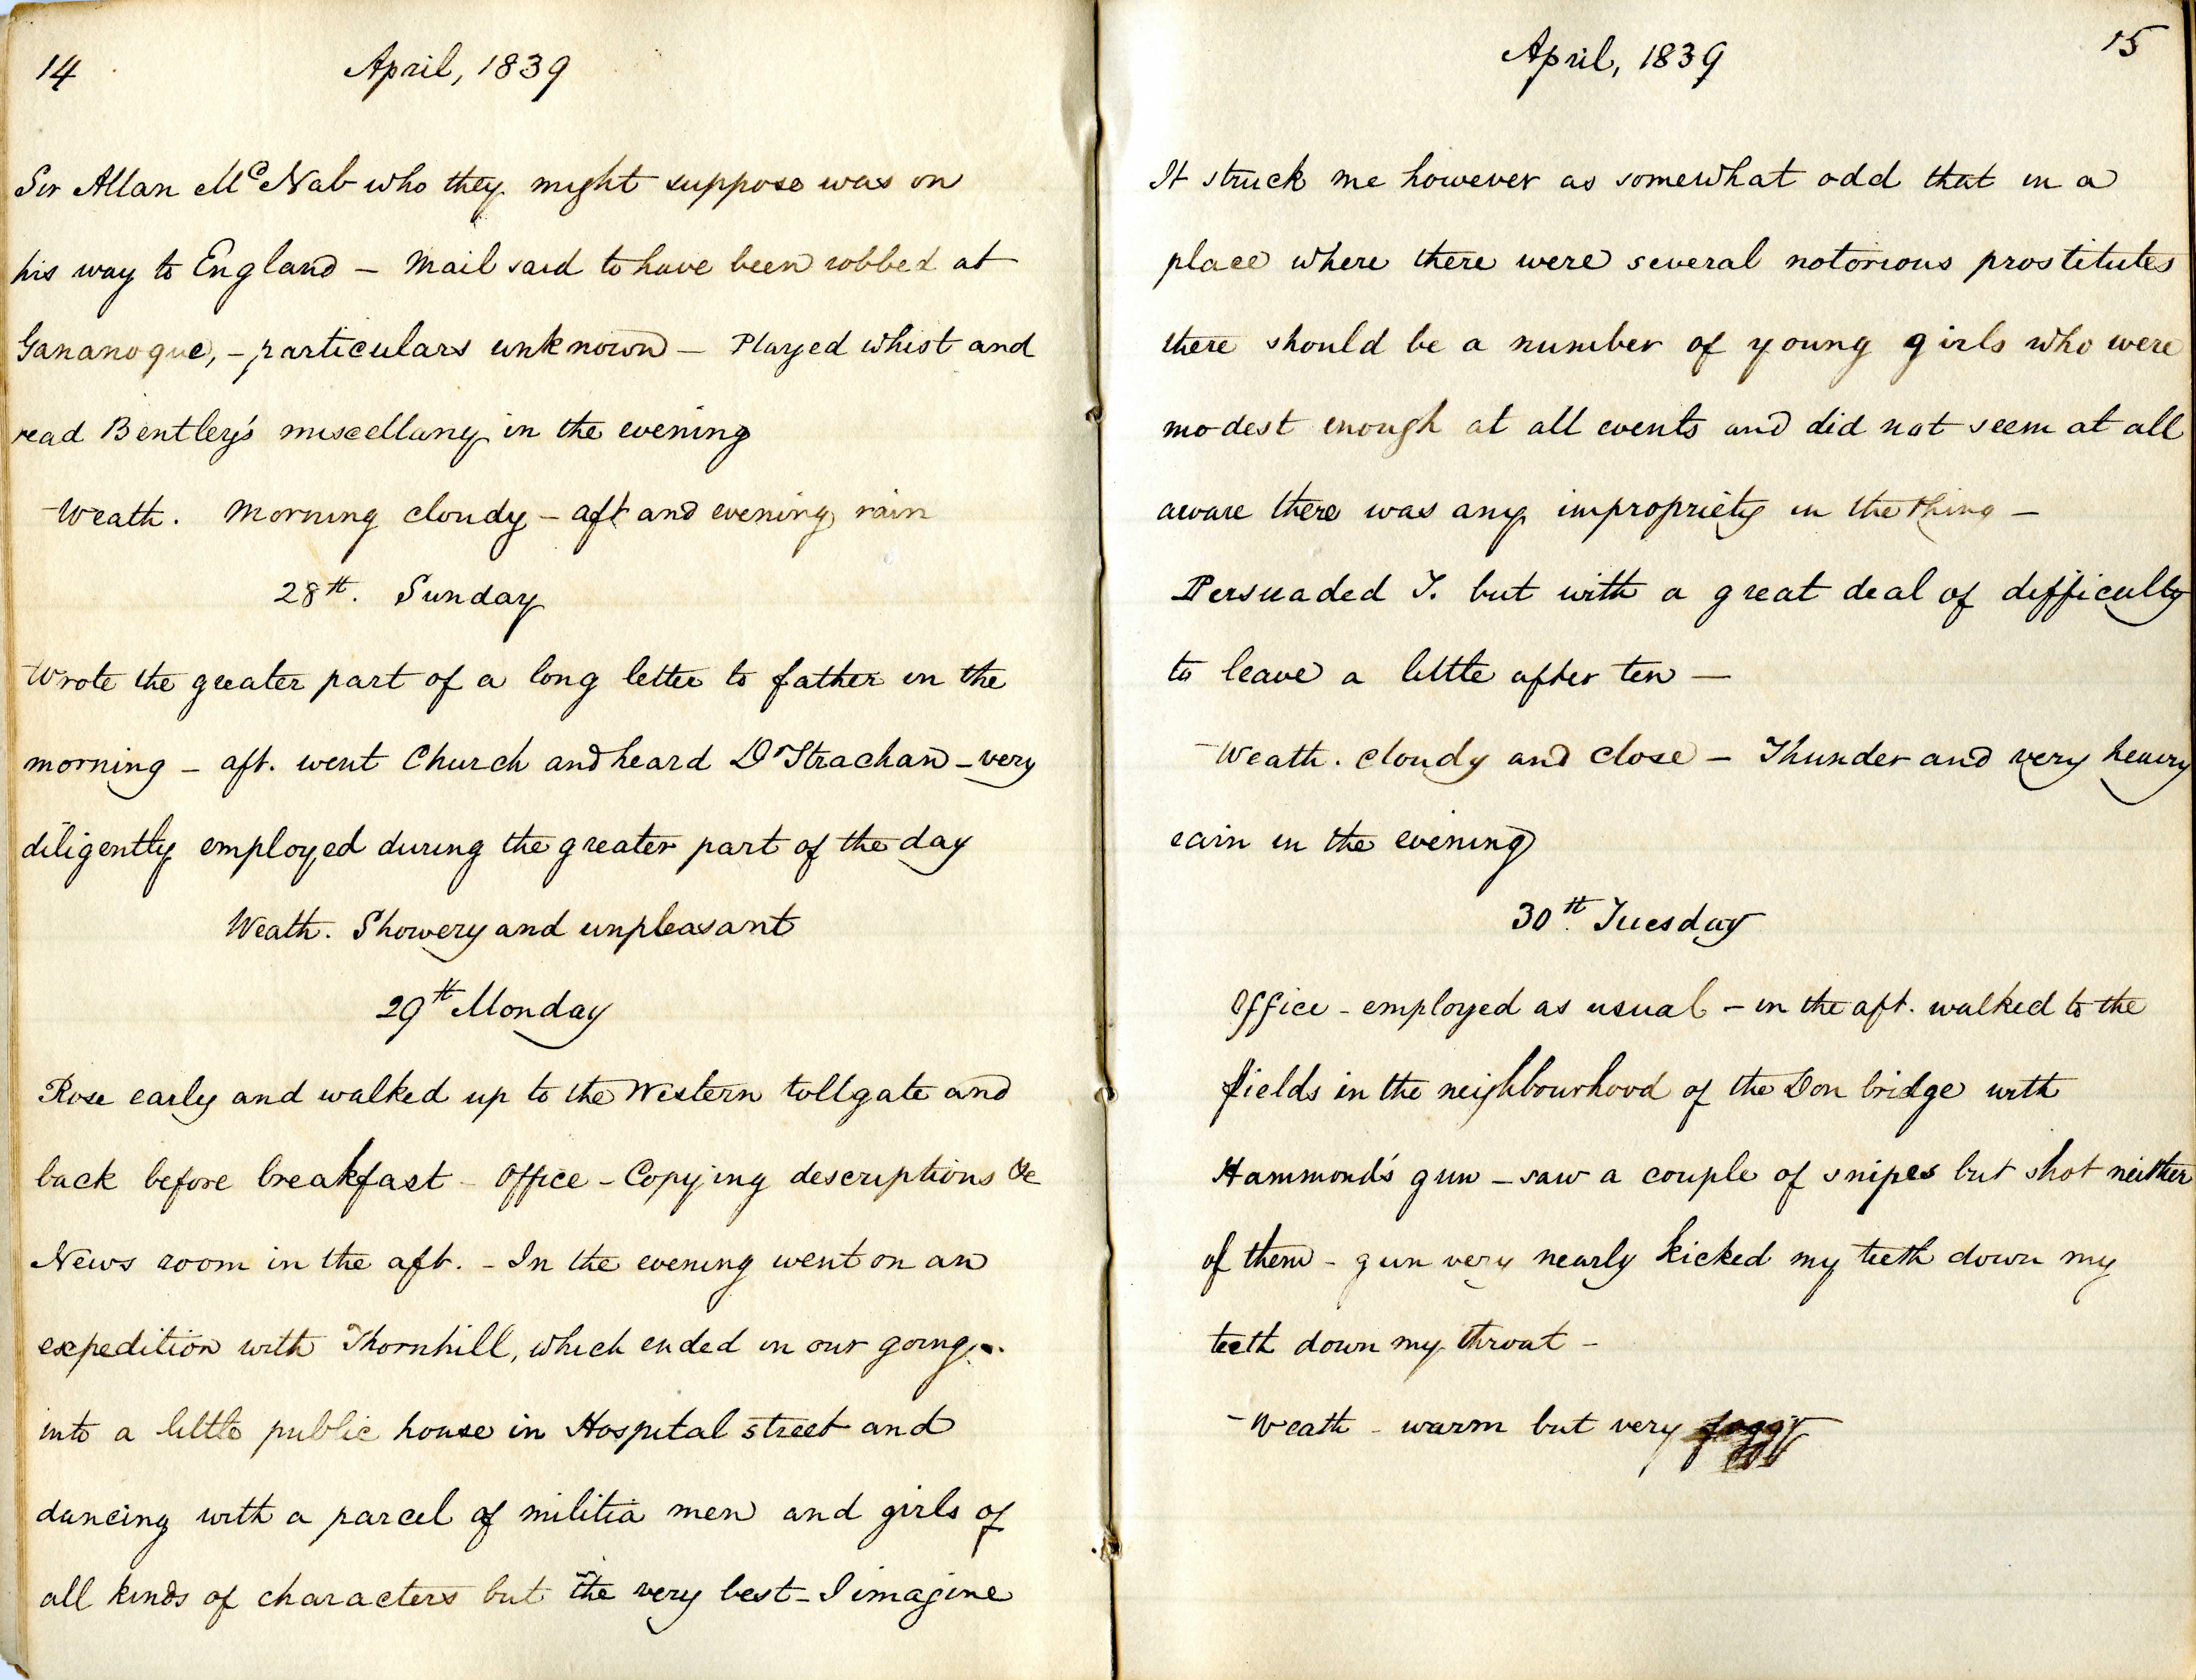 14
April, 1839
Sir Allan McNab who they might suppose was on
his way to England – Mail said to have been robbed at
Gananoque, – particulars unknown – Played whist and
read Bentley's miscellany in the evening
Weath. Morning cloudy – aft and evening rain
28th. Sunday
Wrote the greater part of a long letter to father in the
morning – aft. went Church and heard Dr Strachan – very
diligently employed during the greater part of the day
Weath. Showery and unpleasant
29th Monday
Rose early and walked up to the Western tollgate and
back before breakfast – Office – Copying descriptions &c
News room in the aft. – In the evening went on an
expedition with Thornhill, which ended in our going
into a little public house in Hospital street and
dancing with a parcel of militia men and girls of
all kinds of characters but the very best – I imagine
April, 1839
15
It struck me however as somewhat odd that in a
place where there were several notorious prostitutes
there should be a number of young girls who were
modest enough at all events and did not seem at all
aware there was any impropriety in the thing –
Persuaded T. but with a great deal of difficulty
to leave a little after ten –
Weath. cloudy and close – Thunder and very heavy
rain in the evening
30th. Tuesday
Office – employed as usual – in the aft. walked to the
fields in the neighbourhood of the Don bridge with
Hammond's gun – saw a couple of snipes but shot neither
of them – gun very nearly kicked my teeth down my
teeth down my throat –
Weath – warm but very foggy